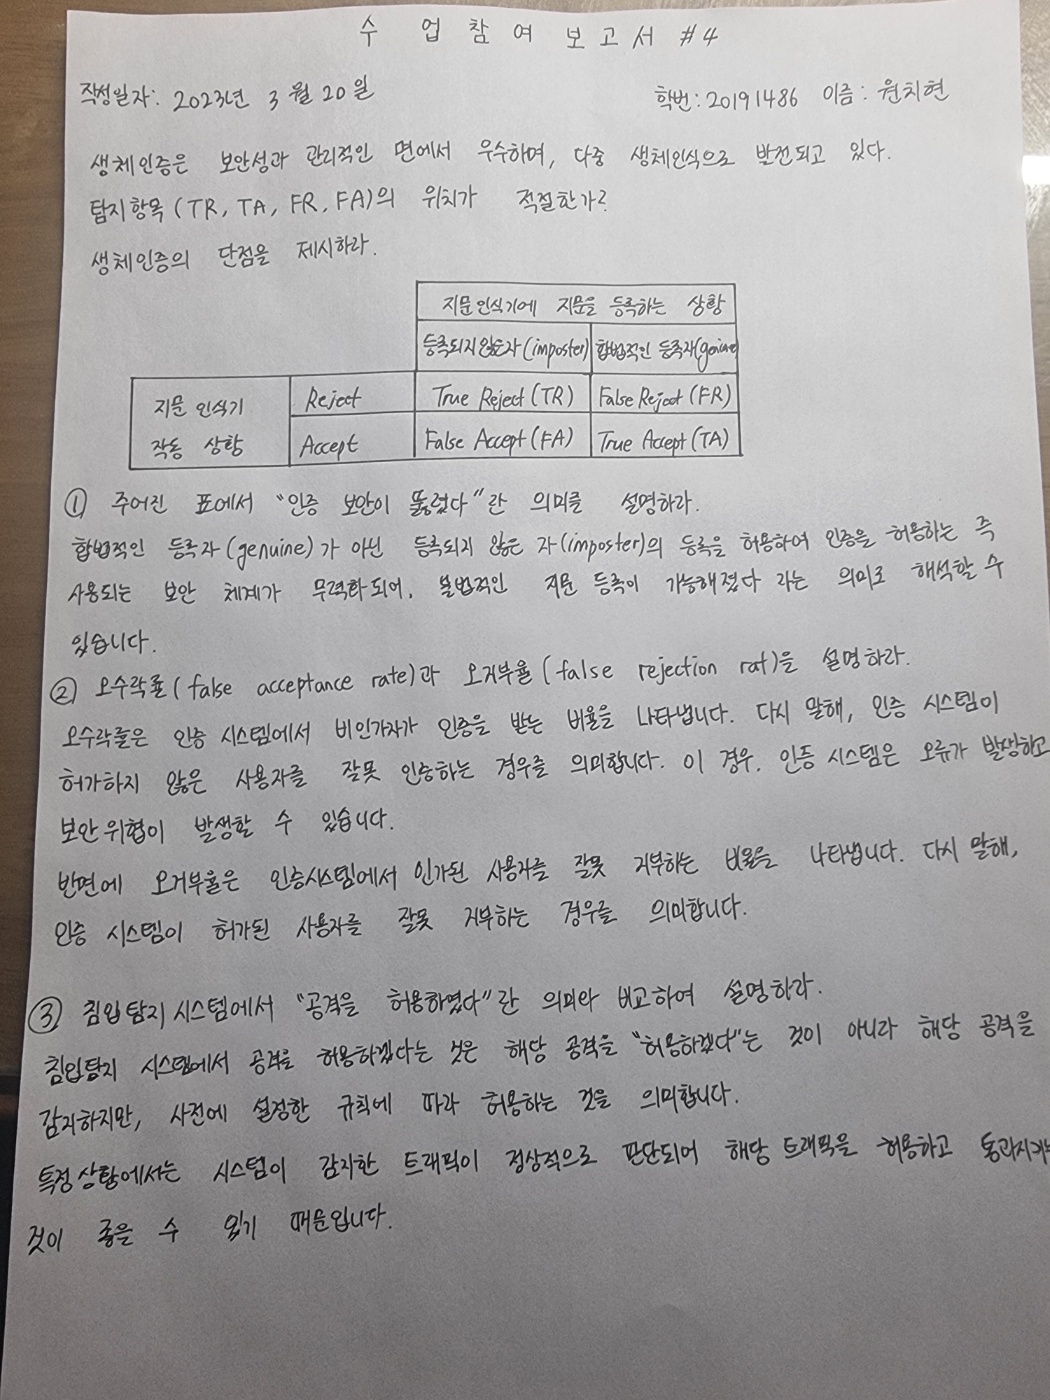 수 업 참 여 보 고 서 #4
작성일자: 2023년 3월 20일 학번: 20191486 이름: 원치현
생체인증은 보안성과 관리적인 면에서 우수하며, 다중 생체인식으로 발전되고 있다.
탐지항목(TR, TA, FR, FA)의 위치가 적절한가?
생체인증의 단점을 제시하라.
지문인식기에 지문을 등록하는 상황
등록되지않은자(imposter) 합법적인 등록자(genuine)
지문 인식기 작동 상황
Reject True Reject(TR) False Reject(FR)
Accept False Accept(FA) True Accept(TA)
① 주어진 표에서 "인증 보안이 뚫렸다"란 의미를 설명하라.
합법적인 등록자(genuine)가 아닌 등록되지 않은 자(imposter)의 등록을 허용하여 인증을 허용하는 즉
사용되는 보안 체계가 무력화되어, 불법적인 지문 등록이 가능해졌다 라는 의미로 해석할 수
있습니다.
② 오수락률(false acceptance rate)과 오거부율(false rejection rat)을 설명하라.
오수락률은 인증 시스템에서 비인가자가 인증을 받는 비율을 나타냅니다. 다시 말해, 인증 시스템이
허가하지 않은 사용자를 잘못 인증하는 경우를 의미합니다. 이 경우, 인증 시스템은 오류가 발생하고
보안위협이 발생할 수 있습니다.
반면에 오거부율은 인증시스템에서 인가된 사용자를 잘못 거부하는 비율을 나타냅니다. 다시 말해,
인증 시스템이 허가된 사용자를 잘못 거부하는 경우를 의미합니다.
③ 침입탐지시스템에서 "공격을 허용하였다"란 의미와 비교하여 설명하라.
침입탐지 시스템에서 공격을 허용하겠다는 것은 해당 공격을 "허용하겠다"는 것이 아니라 해당 공격을
감지하지만, 사전에 설정한 규칙에 따라 허용하는 것을 의미합니다.
특정상황에서는 시스템이 감지한 트래픽이 정상적으로 판단되어 해당 트래픽을 허용하고 통과시키는
것이 좋을 수 있기 때문입니다.